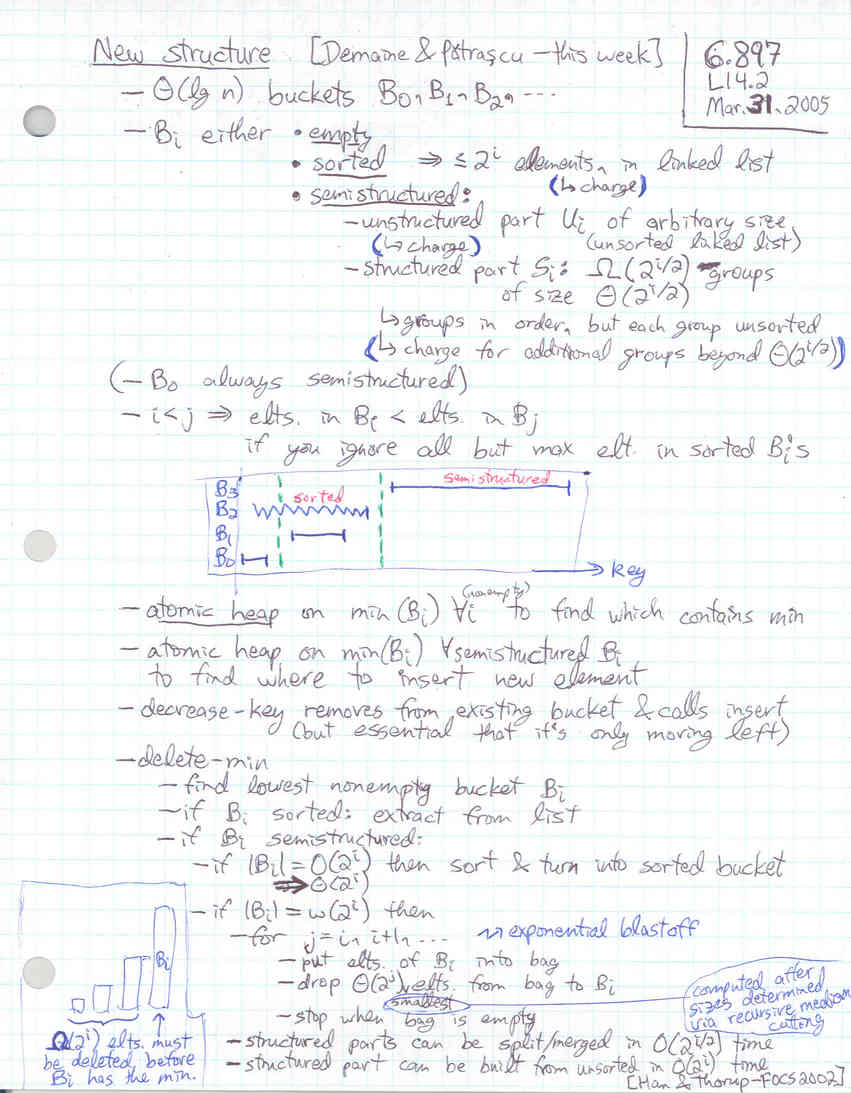 New structure [Demaine & Pătraşcu — this week]
6.897
L14.2
Mar. 31, 2005
— Θ(lg n) buckets B₀, B₁, B₂, ...
— Bᵢ either • empty
• sorted ⇒ ≤ 2ⁱ elements, in linked list
(↳ charge)
• semistructured:
— unstructured part Uᵢ of arbitrary size
(↳ charge) (unsorted linked list)
— structured part Sᵢ: Ω(2^{i/2}) groups
of size Θ(2^{i/2})
↳ groups in order, but each group unsorted
(↳ charge for additional groups beyond Θ(2^{i/2}))
(— B₀ always semistructured)
— i<j ⇒ elts. in Bᵢ < elts. in Bⱼ
if you ignore all but max elt. in sorted Bᵢ's
B₃ semistructured
B₂ sorted
B₁
B₀
→ key
— atomic heap on min(Bᵢ) ∀i (nonempty) to find which contains min
— atomic heap on min(Bᵢ) ∀ semistructured Bᵢ
to find where to insert new element
— decrease-key removes from existing bucket & calls insert
(but essential that it's only moving left)
— delete-min
— find lowest nonempty bucket Bᵢ
— if Bᵢ sorted: extract from list
— if Bᵢ semistructured:
— if |Bᵢ| = O(2ⁱ) then sort & turn into sorted bucket
⇒ Θ(2ⁱ)
— if |Bᵢ| = ω(2ⁱ) then
— for j = i, i+1, ... ~> exponential blastoff
— put elts. of Bᵢ into bag
— drop Θ(2ʲ) smallest elts. from bag to Bᵢ
— stop when bag is empty
computed after
sizes determined
via recursive median
cutting
Bᵢ
Ω(2ⁱ) elts. must
be deleted before
Bᵢ has the min.
— structured parts can be split/merged in O(2^{i/2}) time
— structured part can be built from unsorted in O(2ⁱ) time
[Han & Thorup — FOCS 2002]